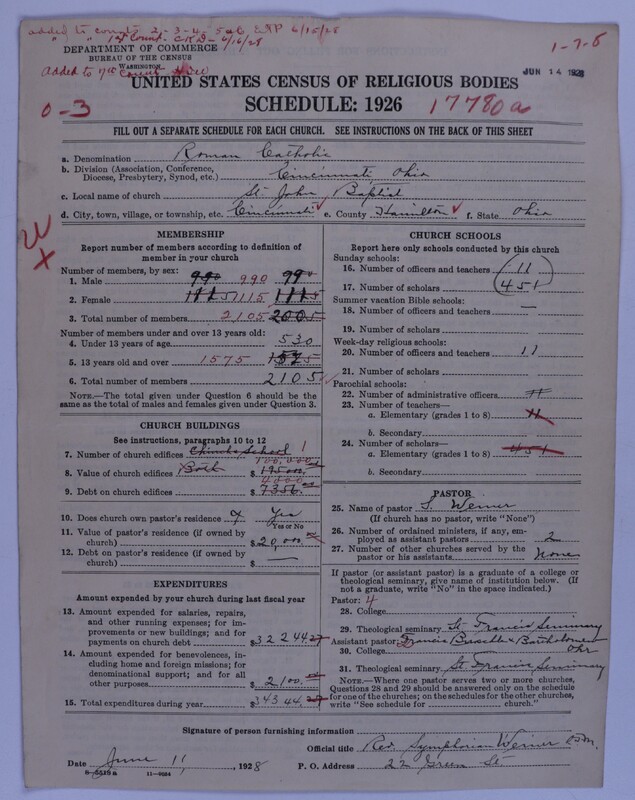 added to counts 2-3-4, 5 & 6 ENP 6/15/28
" " 1st Count - CKD - 6/16/28
DEPARTMENT OF COMMERCE
BUREAU OF THE CENSUS
WASHINGTON
Added to 7th Count
1-7-8
JUN 14 1928
UNITED STATES CENSUS OF RELIGIOUS BODIES
0-3
SCHEDULE: 1926
17780a
FILL OUT A SEPARATE SCHEDULE FOR EACH CHURCH. SEE INSTRUCTIONS ON THE BACK OF THIS SHEET
a. Denomination Roman Catholic
b. Division (Association, Conference, Diocese, Presbytery, Synod, etc.) Cincinnati Ohio
c. Local name of church St John Baptist
d. City, town, village, or township, etc. Cincinnati e. County Hamilton f. State Ohio
MEMBERSHIP
Report number of members according to definition of
member in your church
Number of members, by sex:
1. Male 990 990 990
2. Female 1115 1115 1115
3. Total number of members 2105 2005
Number of members under and over 13 years old:
4. Under 13 years of age 530
5. 13 years old and over 1575 1575
6. Total number of members 2105
NOTE.—The total given under Question 6 should be
same as the total of males and females given under Question 3.
CHURCH BUILDINGS
See instructions, paragraphs 10 to 12
7. Number of church edifices Church & School 1
100,000
8. Value of church edifices Both $ 195000
4000
9. Debt on church edifices $ 7356.00
10. Does church own pastor's residence? Yes
Yes or No
11. Value of pastor's residence (if owned by
church) $ 20,000
12. Debt on pastor's residence (if owned by
church) $
EXPENDITURES
Amount expended by your church during last fiscal year
13. Amount expended for salaries, repairs,
and other running expenses; for im-
provements or new buildings; and for
payments on church debt $ 32 244.27
14. Amount expended for benevolences,
including home and foreign missions; for
denominational support; and for all
other purposes $ 2100.00
15. Total expenditures during year $ 343 44.27
CHURCH SCHOOLS
Report here only schools conducted by this church
Sunday schools:
16. Number of officers and teachers 11
17. Number of scholars 451
Summer vacation Bible schools:
18. Number of officers and teachers —
19. Number of scholars
Week-day religious schools:
20. Number of officers and teachers 11
21. Number of scholars
Parochial schools:
22. Number of administrative officers
23. Number of teachers—
a. Elementary (grades 1 to 8) 11
b. Secondary
24. Number of scholars—
a. Elementary (grades 1 to 8) 451
b. Secondary
PASTOR
25. Name of pastor S. Weiner
(If church has no pastor, write "None")
26. Number of ordained ministers, if any, em-
ployed as assistant pastors 2
27. Number of other churches served by the
pastor or his assistants None
If pastor (or assistant pastor) is a graduate of a college or
theological seminary, give name of institution below. (If
not a graduate, write "No" in the space indicated.)
Pastor: 4
28. College
29. Theological seminary St Francis Seminary
Assistant pastor: Francis
30. College
31. Theological seminary St Francis Seminary
NOTE.—Where one pastor serves two or more churches,
Questions 28 and 29 should be answered only on the schedule
for one of the churches; on the schedules for the other churches,
write "See schedule for church."
Signature of person furnishing information
Official title Rev. Symphorian Weiner OFM.
Date June 11, 1928 P. O. Address 22 Green St.
8-5519a 11-6634